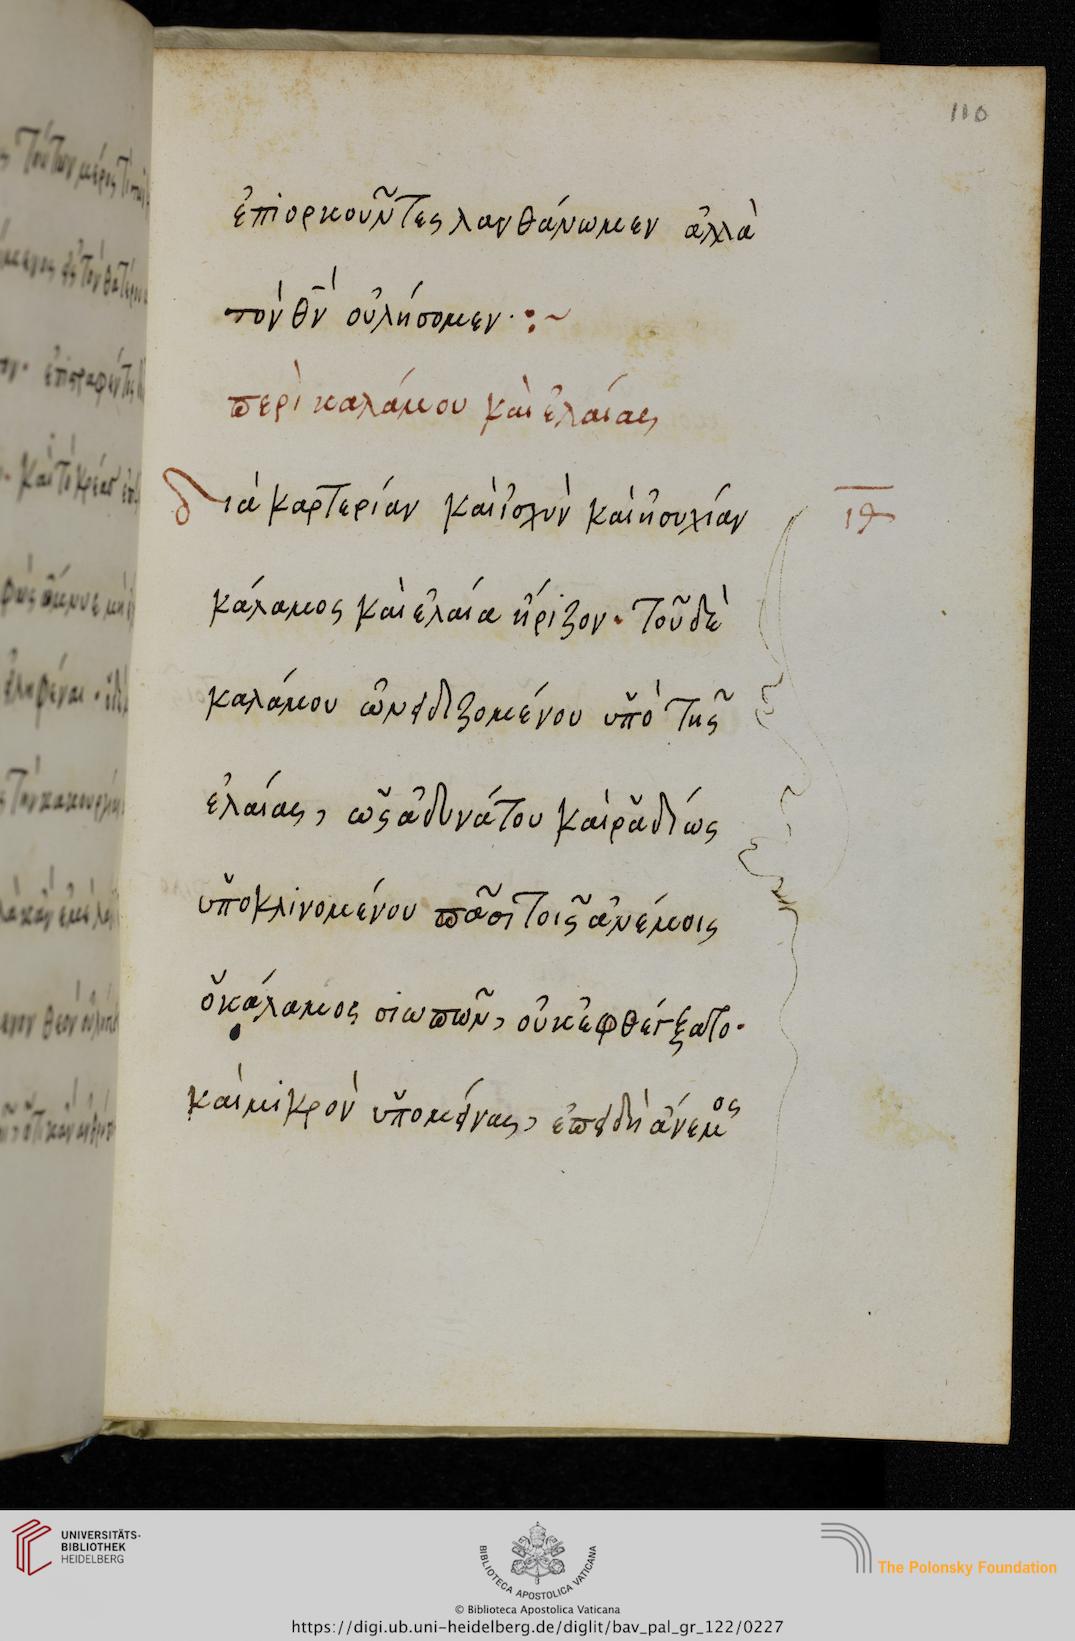 110
ἐπιορκοῦντες λανθάνωμεν ἀλλὰ
τὸν θν̅ οὐ λήσομεν· :~
περὶ καλάμου καὶ ἐλαίας
διὰ καρτερίαν καὶ ἰσχὺν καὶ ἡσυχίαν
ιθ
κάλαμος καὶ ἐλαία ἤριζον· τοῦ δὲ
καλάμου ὠνειδιζομένου ὑπὸ τῆς
ἐλαίας, ὡς ἀδυνάτου καὶ ῥαδίως
ὑποκλινομένου πᾶσι τοῖς ἀνέμοις
ὁ κάλαμος σιωπῶν, οὐκ ἐφθέγξατο·
καὶ μικρὸν ὑπομείνας, ἐπειδὴ ἄνεμος
UNIVERSITÄTS-
BIBLIOTHEK
HEIDELBERG
BIBLIOTECA APOSTOLICA VATICANA
The Polonsky Foundation
© Biblioteca Apostolica Vaticana
https://digi.ub.uni-heidelberg.de/diglit/bav_pal_gr_122/0227